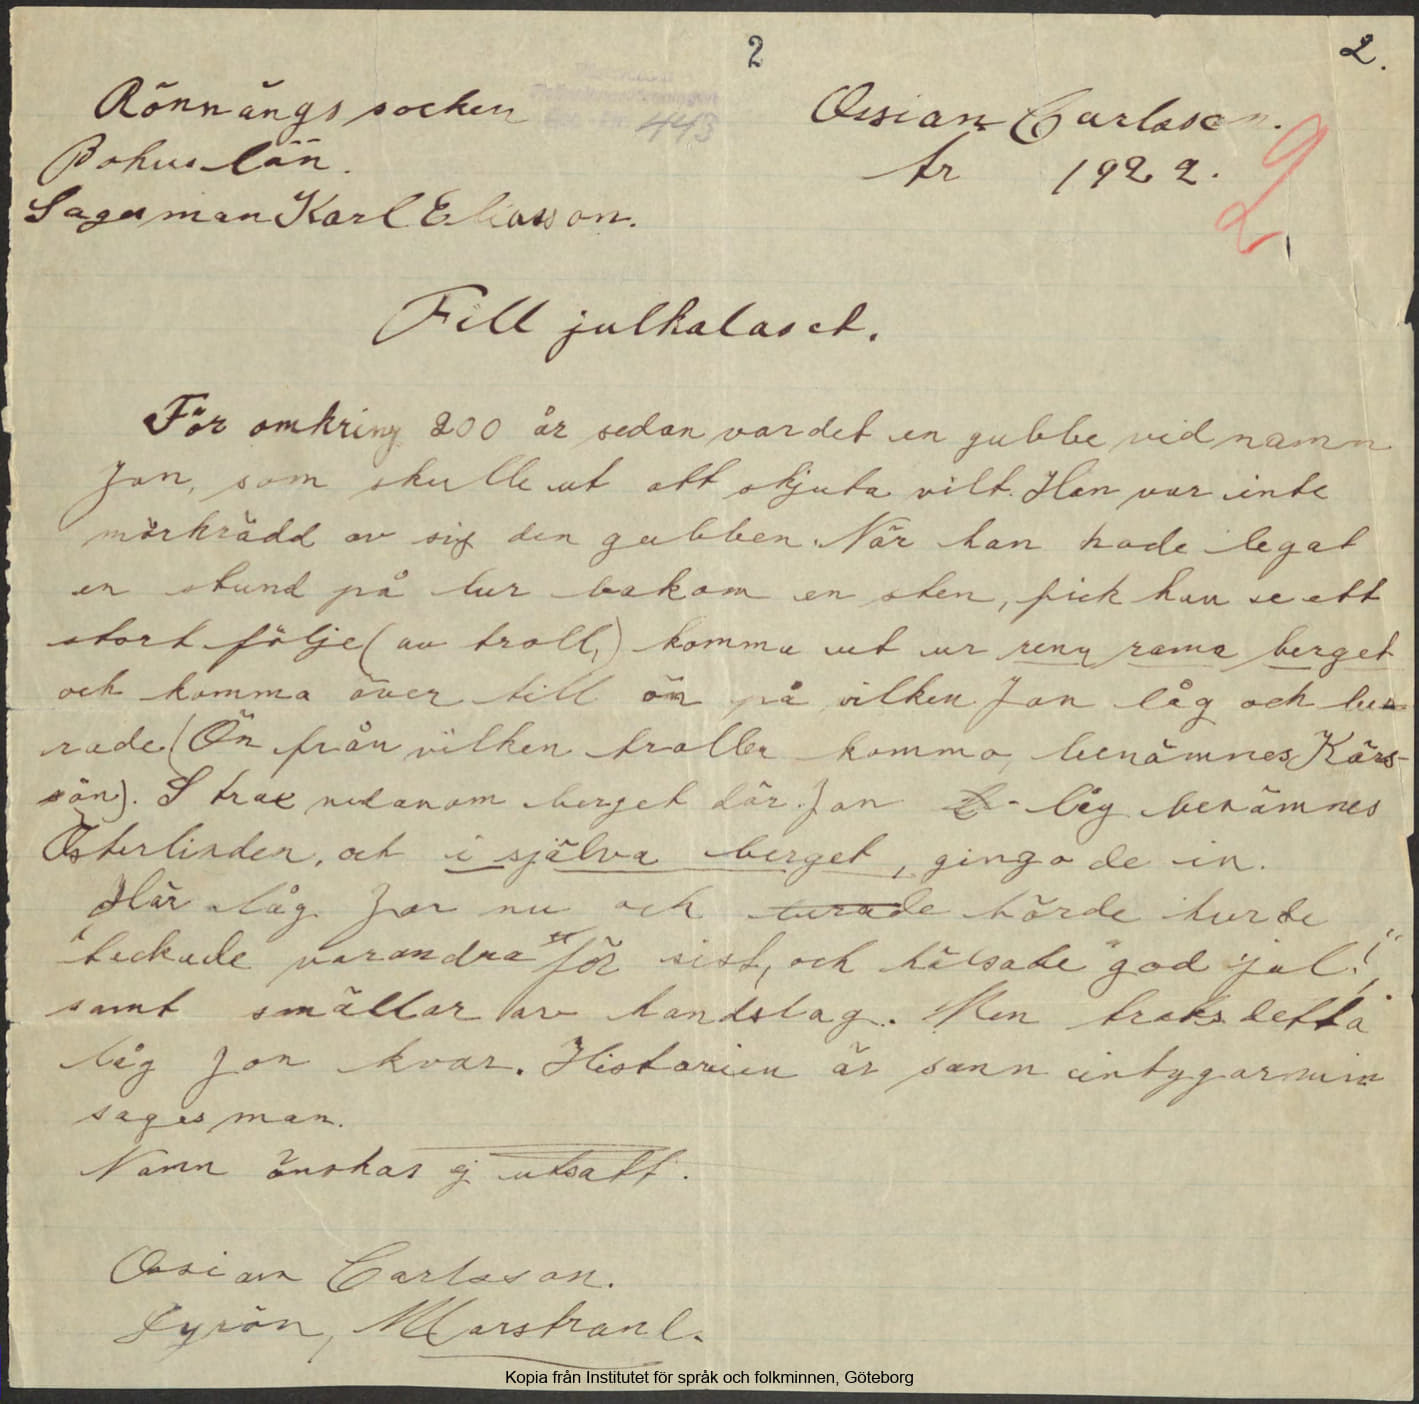 2
2.
Rönnängs socken
443
Ossian Carlsson.
Bohuslän.
år 1922.
Sagesman Karl Eliasson.
2
Till julkalaset.
För omkring 200 år sedan var det en gubbe vid namn
Jon, som skulle ut att skjuta vilt. Han var inte
mörkrädd av sig den gubben. När han hade legat
en stund på lur bakom en sten, fick han se ett
stort följe (av troll,) komma ut ur rena rama berget
och komma över till ön på vilken Jon låg och lu-
rade. (Ön från vilken trollen kommo, benämnes Kärs-
sön). Strax nedanom berget där Jon låg benämnes
Österlinden, och i själva berget, gingo de in.
Här låg Jon nu och lurade hörde hur de
"tackade varandra för sist, och hälsade "god jul!"
samt smällar av handslag. Men traks detta
låg Jon kvar. Historien är sann intygar min
sagesman.
Namn önskas ej utsatt.
Ossian Carlsson.
Dyrön, Marstrand.
Kopia från Institutet för språk och folkminnen, Göteborg